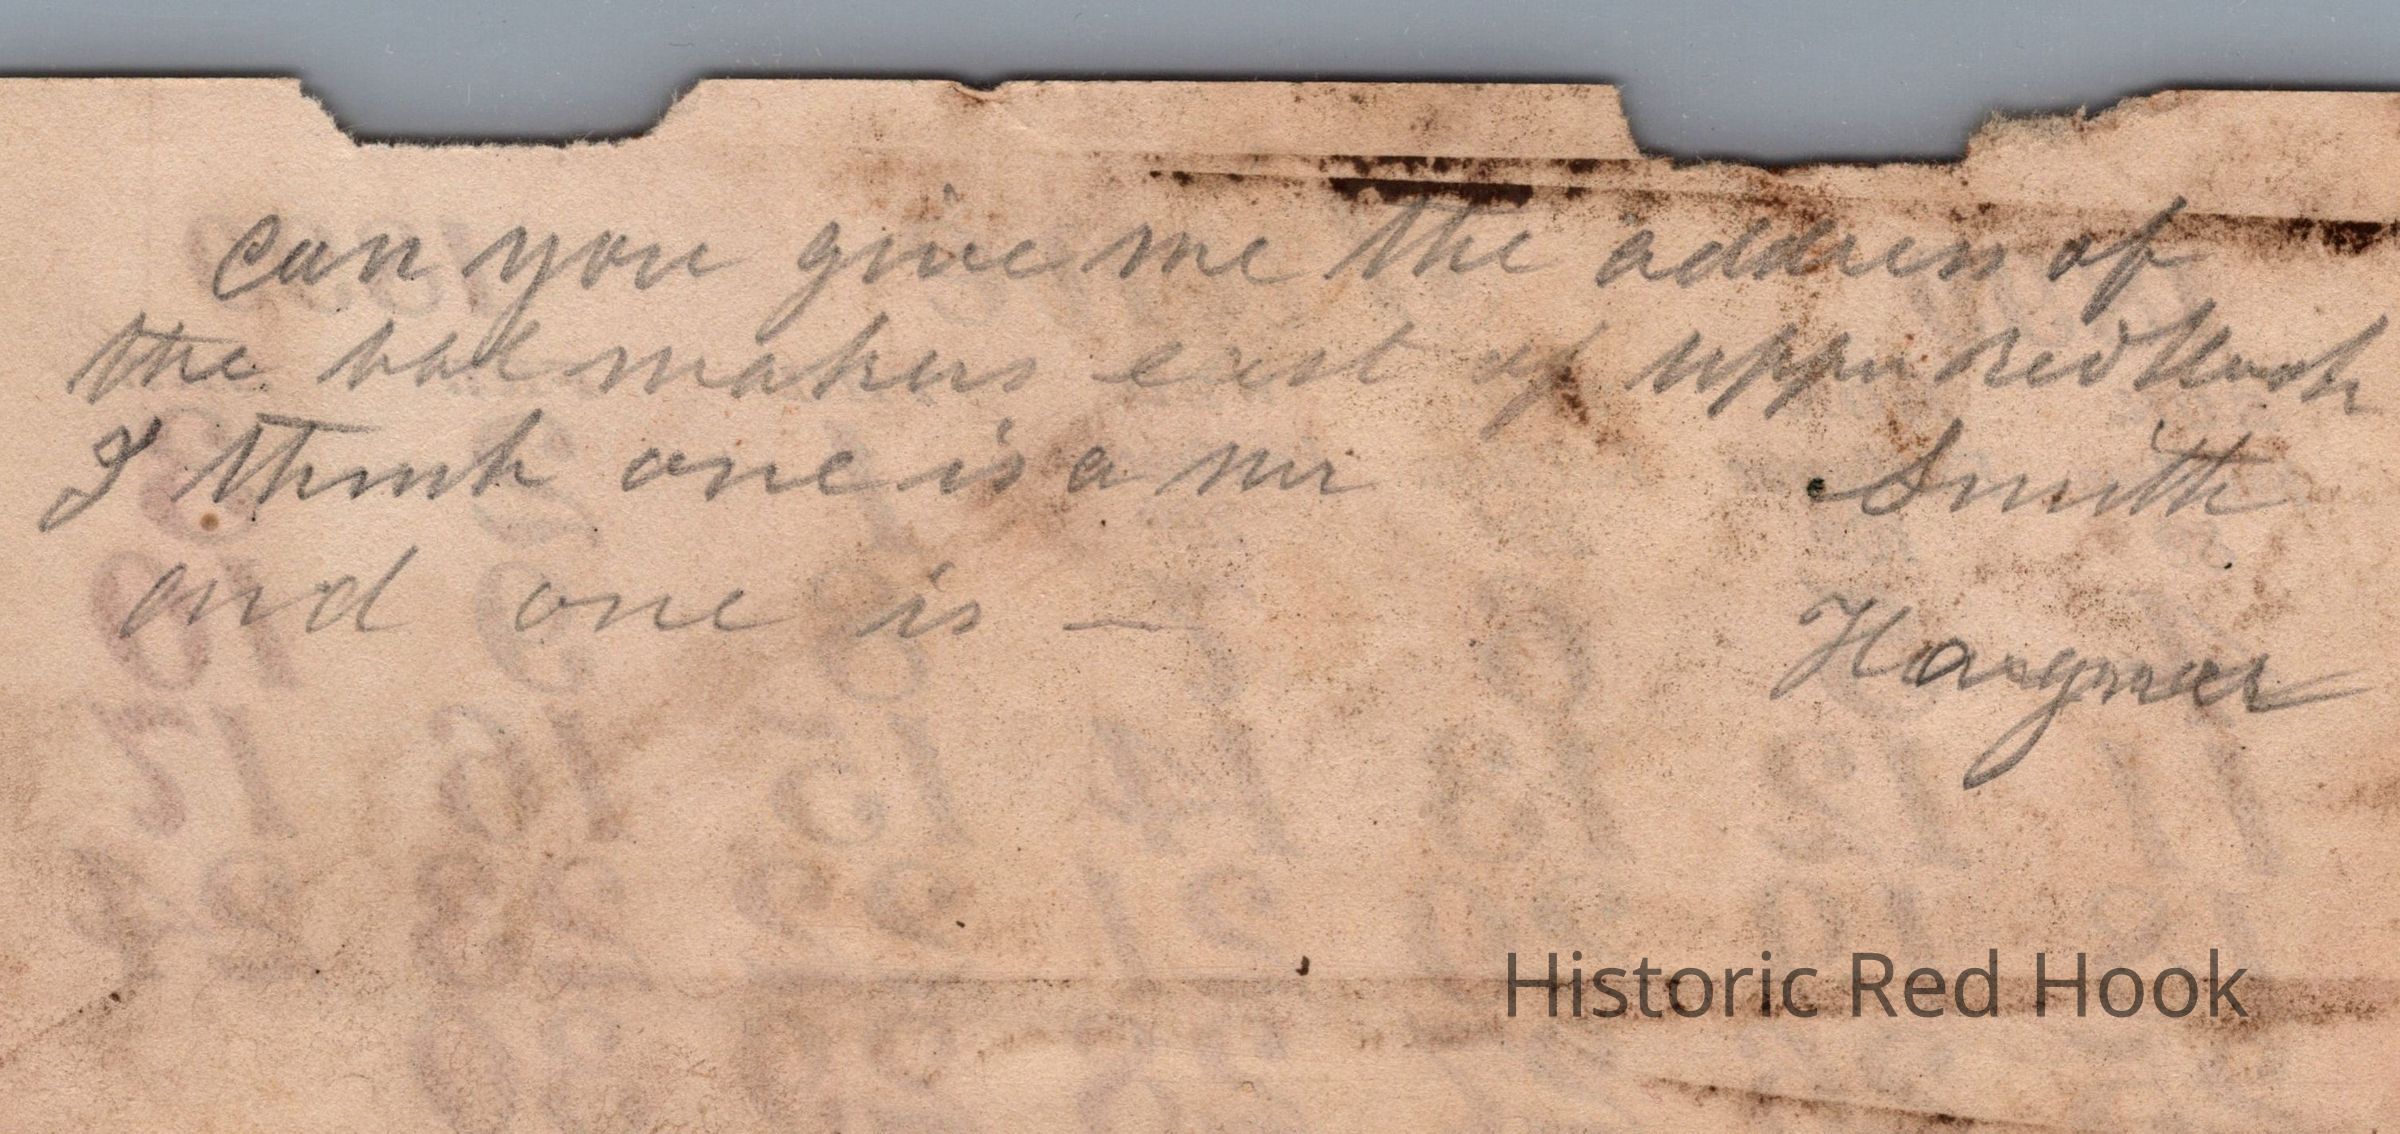 can you give me the address of
the bbl makers east of upper Red Hook
I think one is a mr Smith
and one is — Hagmer
Historic Red Hook